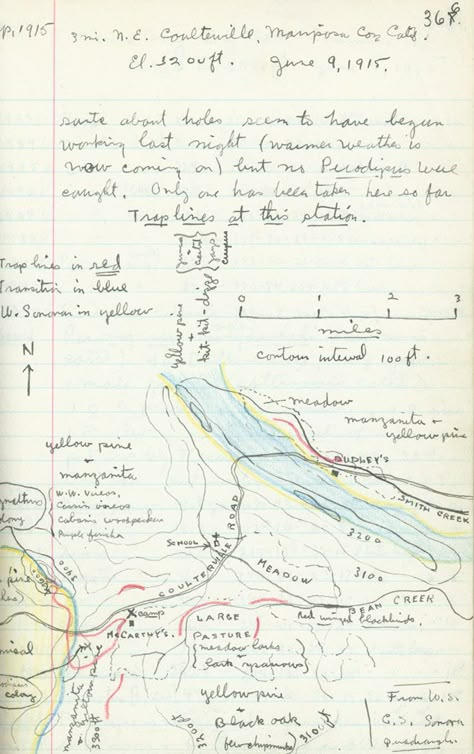 p, 1915
368
3 mi. N. E. Coulterville, Mariposa Co., Calif.
El. 3200 ft. June 9, 1915.
about holes seem to have begun
working last night (warmer weather is
now coming on) but no Perodipus were
caught. Only one has been taken here so far
Trap lines at this station.
Trap lines in red
Transition in blue
W. Sonoran in yellow
yellow pine
+
kit-kit-dizze
jays
0 1 2 3
miles
contour interval 100 ft.
N
meadow
manzanita +
yellow pine
DUDLEY'S
SMITH CREEK
yellow pine
+
manzanita
W.W. Vireos
Cassin vireos
Cabanis woodpecker
Purple finches
SCHOOL
COULTERVILLE ROAD
MEADOW
3200
3100
BEAN CREEK
Red winged blackbirds
camp
McCARTHY'S
LARGE
PASTURE
(meadow larks
lark sparrows)
colony
3200
colony
manzanita
+ yellow pine
3300 ft
yellow pine
+
Black oak
(few chipmunks)
3200 ft
3100 ft
From U.S.
G.S. Sonora
Quadrangle